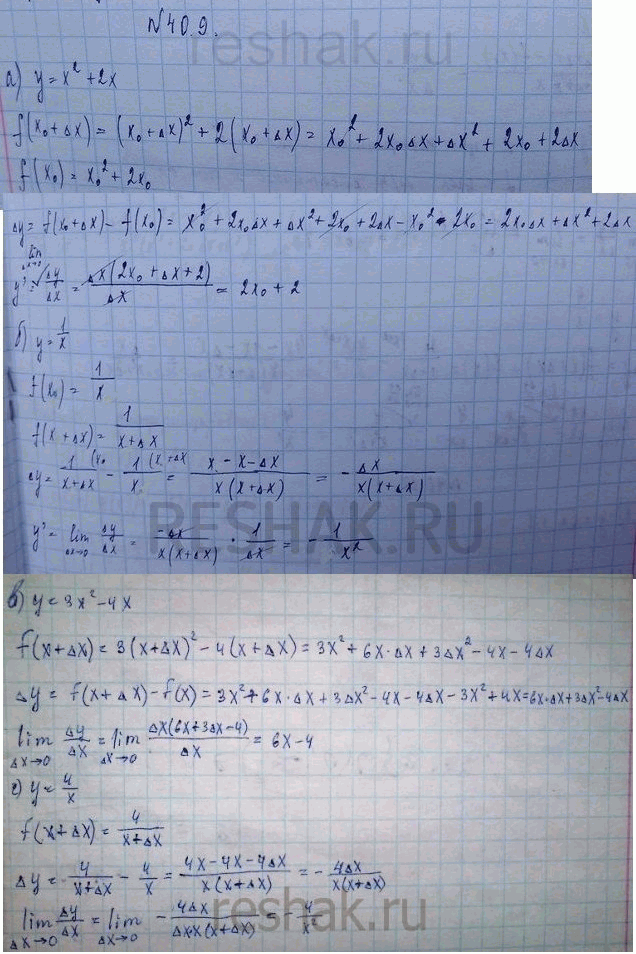 reshak.ru
№40.9.
а) y = x² + 2x
f(x₀+Δx) = (x₀+Δx)² + 2(x₀+Δx) = x₀² + 2x₀Δx + Δx² + 2x₀ + 2Δx
f(x₀) = x₀² + 2x₀
Δy = f(x₀+Δx) - f(x₀) = x₀² + 2x₀Δx + Δx² + 2x₀ + 2Δx - x₀² - 2x₀ = 2x₀Δx + Δx² + 2Δx
y' = lim Δx→0 Δy/Δx = Δx(2x₀ + Δx + 2)/Δx = 2x₀ + 2
б) y = 1/x
f(x₀) = 1/x
f(x+Δx) = 1/(x+Δx)
Δy = 1/(x+Δx) - 1/x = (x - x - Δx)/(x(x+Δx)) = - Δx/(x(x+Δx))
RESHAK.RU
y' = lim Δx→0 Δy/Δx = -Δx/(x(x+Δx)) · 1/Δx = - 1/x²
в) y = 3x² - 4x
f(x+Δx) = 3(x+Δx)² - 4(x+Δx) = 3x² + 6x·Δx + 3Δx² - 4x - 4Δx
Δy = f(x+Δx) - f(x) = 3x² + 6x·Δx + 3Δx² - 4x - 4Δx - 3x² + 4x = 6x·Δx + 3Δx² - 4Δx
lim Δx→0 Δy/Δx = lim Δx→0 Δx(6x+3Δx-4)/Δx = 6x - 4
г) y = 4/x
f(x+Δx) = 4/(x+Δx)
Δy = 4/(x+Δx) - 4/x = (4x - 4x - 4Δx)/(x(x+Δx)) = - 4Δx/(x(x+Δx))
lim Δx→0 Δy/Δx = lim Δx→0 - 4Δx/(Δx·x(x+Δx)) = - 4/x²
reshak.ru